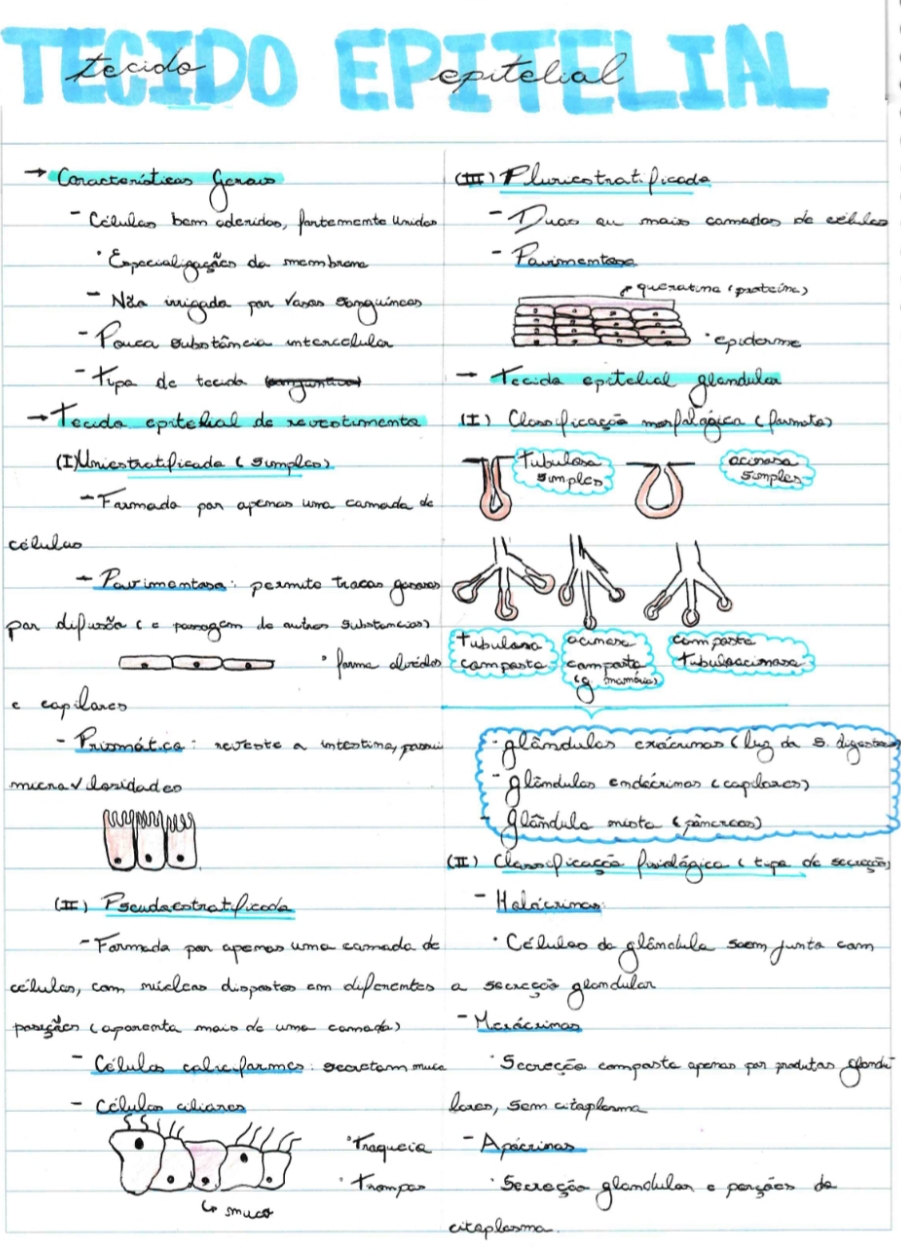 TECIDO EPITELIAL
tecido epitelial
→ Características Gerais
- Células bem aderidas, fortemente unidas
• Especializações da membrana
- Não irrigado por vasos sanguíneos
- Pouca substância intercelular
- Tipo de tecido
→ Tecido epitelial de revestimento
(I) Uniestratificado (simples)
- Formado por apenas uma camada de
células
- Pavimentoso: permite trocas gasosas
por difusão (e passagem de outras substâncias)
• forma alvéolos
e capilares
- Prismático: reveste o intestino, possui
microvilosidades
(II) Pseudoestratificado
- Formado por apenas uma camada de
células, com núcleos dispostos em diferentes
posições (aparenta mais de uma camada)
- Células caliciformes: secretam muco
- Células ciliares
• Traqueia
• Trompas
↳ muco
(III) Pluriestratificado
- Duas ou mais camadas de células
- Pavimentoso
queratina (proteína)
• epiderme
→ Tecido epitelial glandular
(I) Classificação morfológica (formato)
tubulosa
simples
acinosa
simples
tubulosa
composta
acinosa
composta
(g. mamárias)
composta
tubuloacinosa
- glândulas exócrinas (luz do s. digestivo)
- glândulas endócrinas (capilares)
- glândula mista (pâncreas)
(II) Classificação fisiológica (tipo de secreção)
- Holócrinas:
• Células da glândula saem junto com
a secreção glandular
- Merócrinas
• Secreção composta apenas por produtos glandu-
lares, sem citoplasma
- Apócrinas
• Secreção glandular e porções do
citoplasma.